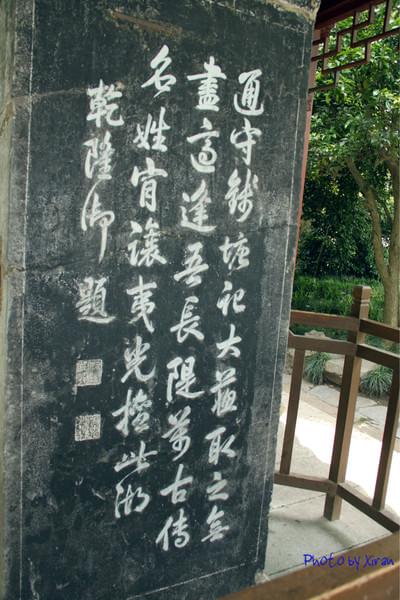 通守錢塘記大蘇取之無
盡適逢吾長隄萬古傳
名姓肯讓夷光擅此湖
乾隆御題
Photo by Xiran